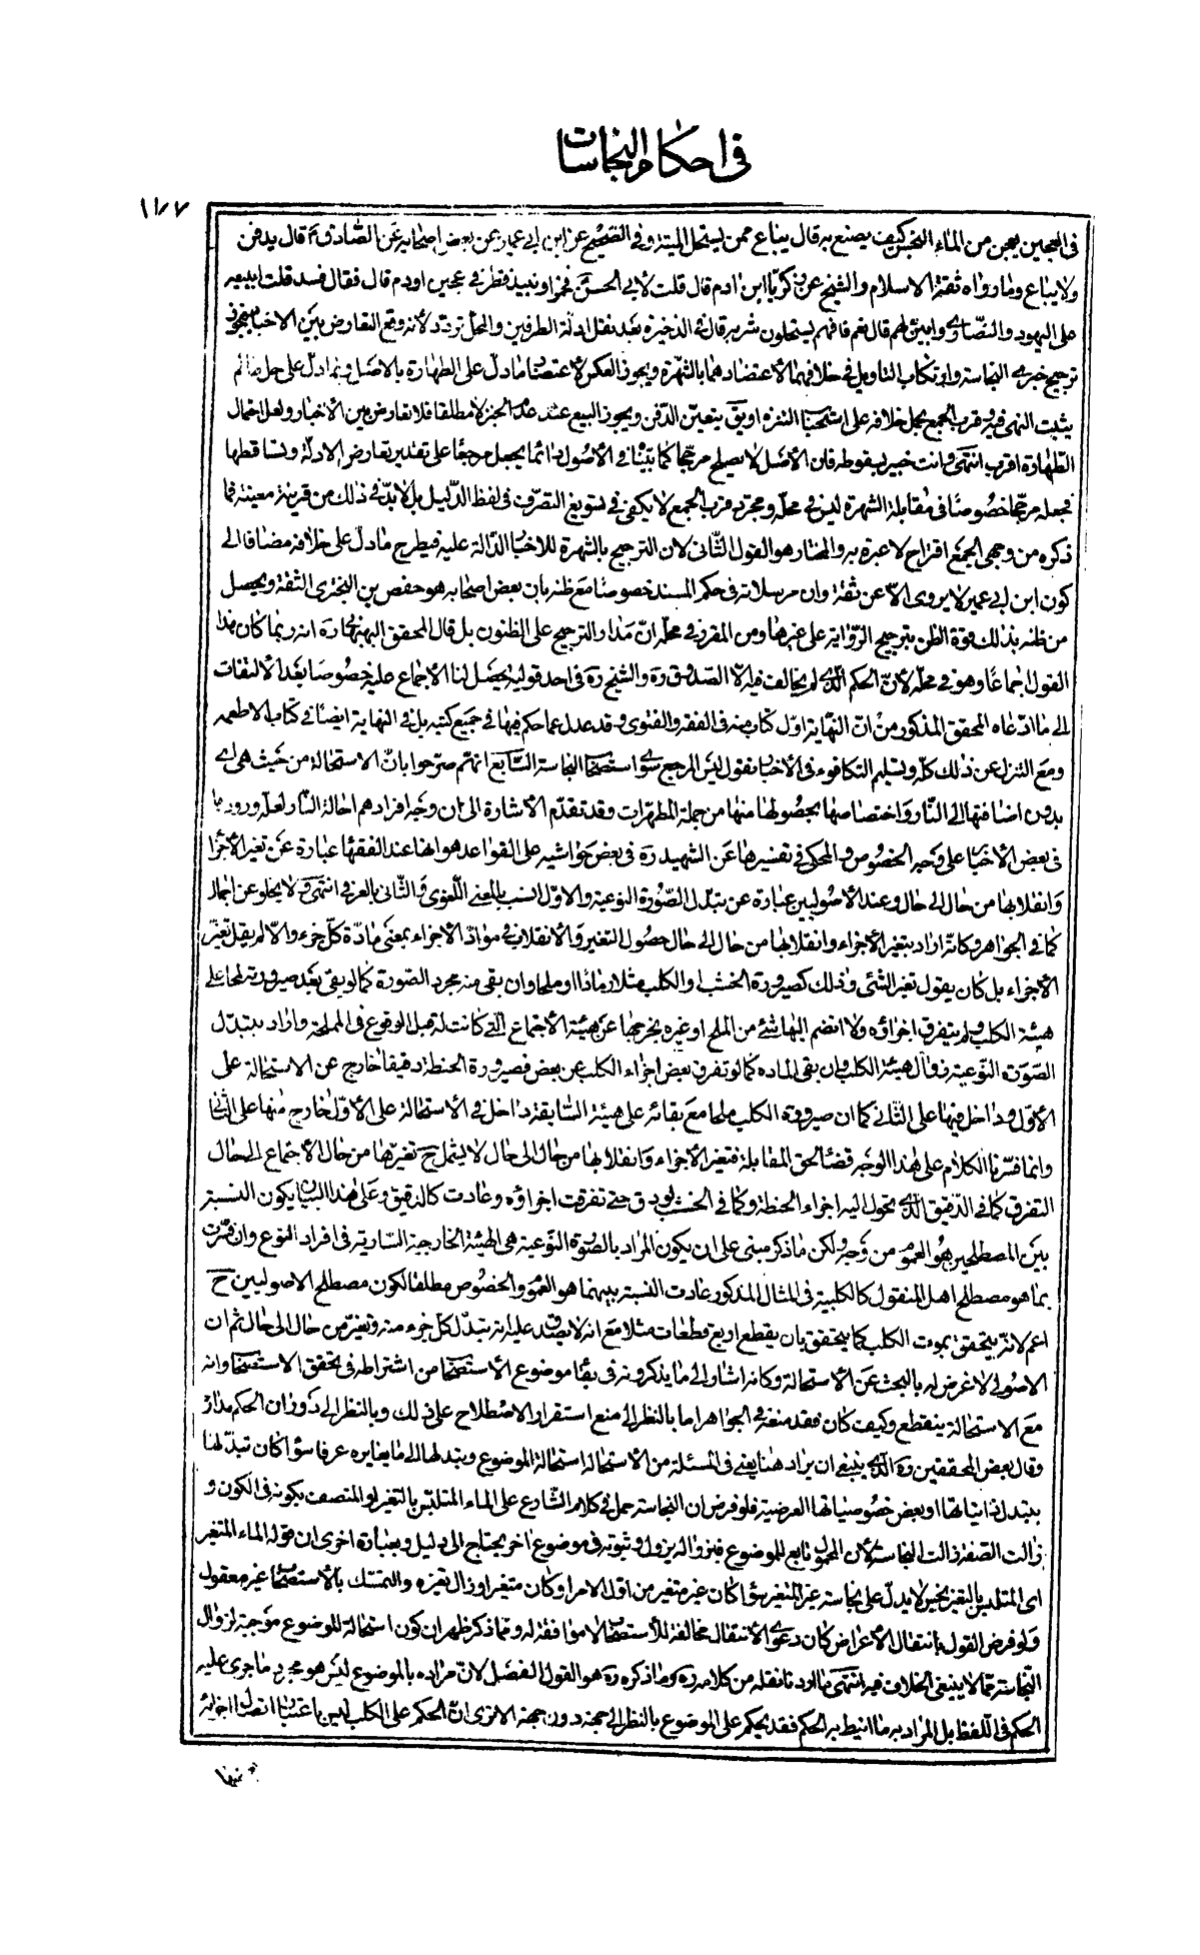 في احكام النجاسات
١١٧
في العجين يعجن من الماء النجس كيف يصنع به قال يباع ممن يستحل الميتة وفي الصحيح عن ابن ابي عمير عن بعض اصحابه عن الصادق ع قال يدفن
ولا يباع وما رواه ثقة الاسلام والشيخ عن زكريا ابن ادم قال قلت لابي الحسن ع فخمر او نبيذ قطر في عجين او دم قال فقال فسد قلت ابيعه
على اليهود والنصارى وابين لهم قال نعم فانهم يستحلون شربه قال في الذخيرة بعد نقل ادلة الطرفين والمحل تردد لانه وقع التعارض بين الاخبار فيجوز
ترجيح خبري النجاسة وارتكاب التاويل في خلافهما لاعتضادهما بالشهرة ويجوز العكس لاعتضاد ما دل على الطهارة بالاصل وبما دل على حل ما لم
يثبت النهي فيه وقرب الجمع بحمل خلافه على استحباب التنزه او يق يتعين الدفن ويجوز البيع عند عدم الخبز لا مطلقا فلا تعارض بين الاخبار ولعل احتمال
الطهارة اقرب انتهى وانت خبير بسقوطه فان الاصل لا يصلح مرجحا كما بيناه في الاصول وانما يجعل مرجعا على تقدير تعارض الادلة وتساقطها
فجعله مرجحا خصوصا في مقابلة الشهرة ليس في محله ومجرد قرب الجمع لا يكفي في تسويغ التصرف في لفظ الدليل بل لابد في ذلك من قرينة معينة فما
ذكره من وجهي الجمع اقتراح لا عبرة به والمختار هو القول الثاني لان الترجيح بالشهرة للاخبار الدالة عليه فيطرح ما دل على خلافه مضافا الى
كون ابن ابي عمير لا يروي الا عن ثقة وان مرسلاته في حكم المسند خصوصا مع ظنه بان بعض اصحابه هو حفص بن البختري الثقة ويحصل
من ظنه بذلك قوة الظن بترجيح الرواية على غيرها ومن المقرر في محله ان مدار الترجيح على الظنون بل قال المحقق البهبهاني ره انه ربما كان هذا
القول اجماعا وهو في محله لان الحكم الذي لم يخالف فيه الا الصدوق ره والشيخ ره في احد قوليه يحصل لنا الاجماع عليه خصوصا بعد الالتفات
الى ما ادعاه المحقق المذكور من ان النهاية اول كتاب منه في الفقه والفتوى وقد عدل عما حكم فيها في جميع كتبه بل في النهاية ايضا في كتاب الاطعمه
ومع التنزل عن ذلك كله وتسليم التكافوء في الاخبار نقول ليس المرجع سوى استصحاب النجاسة السابع انهم صرحوا بان الاستحالة من حيث هي اي
بدون اضافتها الى النار واختصاصها بحصولها منها من جملة المطهرات وقد تقدم الاشارة الى ان وجه افرادهم احالة النار لعله ورودها
في بعض الاخبار على وجه الخصوص والمحكي في تفسيرها عن الشهيد ره في بعض حواشيه على القواعد هو انها عند الفقهاء عبارة عن تغير الاجزاء
وانقلابها من حال الى حال وعند الاصوليين عبارة عن تبدل الصورة النوعية والاول انسب بالمعنى اللغوي والثاني بالعرفي انتهى ولا يخلو عن اجمال
كما في الجواهر وكانه اراد بتغير الاجزاء وانقلابها من حال الى حال حصول التغير والانقلاب في مواد الاجزاء بمعنى مادة كل جزء والا لم يقل تغير
الاجزاء بل كان يقول تغير الشئ وذلك كصيرورة الخشب والكلب مثلا رمادا او ملحا وان بقى منه مجرد الصورة كما لو بقى بعد صيرورته ملحا على
هيئة الكلب ولم يتفرق اجزاؤه ولا انضم اليها شئ من الملح او غيره يخرجها عن هيئة الاجتماع التي كانت له قبل الوقوع في المملحة واراد بتبدل
الصورة النوعية زوال هيئة الكلب وان بقى المادة كما لو تفرق بعض اجزاء الكلب عن بعض فصيرورة الحنطة دقيقا خارج عن الاستحالة على
الاول وداخل فيها على الثاني كما ان صيرورة الكلب ملحا مع بقائه على هيئة السابقة داخل في الاستحالة على الاول خارج منها على الثاني
وانما فسرنا الكلام على هذا الوجه قضاء لحق المقابلة فتغير الاجزاء وانقلابها من حال الى حال لا يشمل ح تغيرها من حال الاجتماع الى حال
التفرق كما في الدقيق الذي يحول اليه اجزاء الحنطة وكما في الخشب لو دق حتى تفرقت اجزاؤه وعادت كالدقيق وعلى هذا البيان يكون النسبة
بين المصطلحين هو العموم من وجه ولكن ما ذكر مبني على ان يكون المراد بالصورة النوعية هي الهيئة الخارجية السارية في افراد النوع وان فسرت
بما هو مصطلح اهل المنقول كالكلبية في المثال المذكور عادت النسبة بينهما هو العموم والخصوص مطلقا لكون مصطلح الاصوليين ح
اعم لانه يتحقق بموت الكلب كما يتحقق بان يقطع اربع قطعات مثلا مع انه لا يصدق عليه انه تبدل كل جزء منه وتغير من حال الى حال ثم ان
الاصولي لا غرض له بالبحث عن الاستحالة وكانه اشار الى ما يذكرونه في بقاء موضوع الاستصحاب من اشتراطه في تحقق الاستصحاب وانه
مع الاستحالة ينقطع وكيف كان فقد منعه في الجواهر اما بالنظر الى منع استقرار الاصطلاح على ذلك وبالنظر الى دوران الحكم مداره
وقال بعض المحققين ره الذي ينبغي ان يراد هنا يعني في المسئلة من الاستحالة استحالة الموضوع وتبدلها الى ما يغايره عرفا سواء كان تبدلها
بتبدل ذاتياتها او بعض خصوصياتها العرضية فلو فرض ان النجاسة حمل في كلام الشارع على الماء المتلبس بالتغير او المتصف بكونه في الكون و
زالت الصفة زالت النجاسة لان المحمول تابع للموضوع فبزواله يزول وثبوته في موضوع اخر يحتاج الى دليل وبعبارة اخرى ان قوله الماء المتغير
اى المتلبس بالتغير نجس لا يدل على نجاسة غير المتغير سواء كان غير متغير من اول الامر او كان متغيرا وزال تغيره والتمسك بالاستصحاب غير معقول
ولو فرض القول بانتقال الاعراض كان دعوى الانتقال مخالفة للاستصحاب لا موافقة له ومما ذكر ظهر ان كون استحالة الموضوع موجبة لزوال
النجاسة مما لا ينبغي الخلاف فيه انتهى ما اردنا نقله من كلامه ره وما ذكره ره هو القول الفصل لان مراده بالموضوع ليس هو مجرد ما جرى عليه
الحكم في اللفظ بل المراد به ما انيط به الحكم فقد يحكم على الموضوع بالنظر الى جهة دون جهة الا ترى ان الحكم على الكلب ليس باعتبار اتصال اجزائه